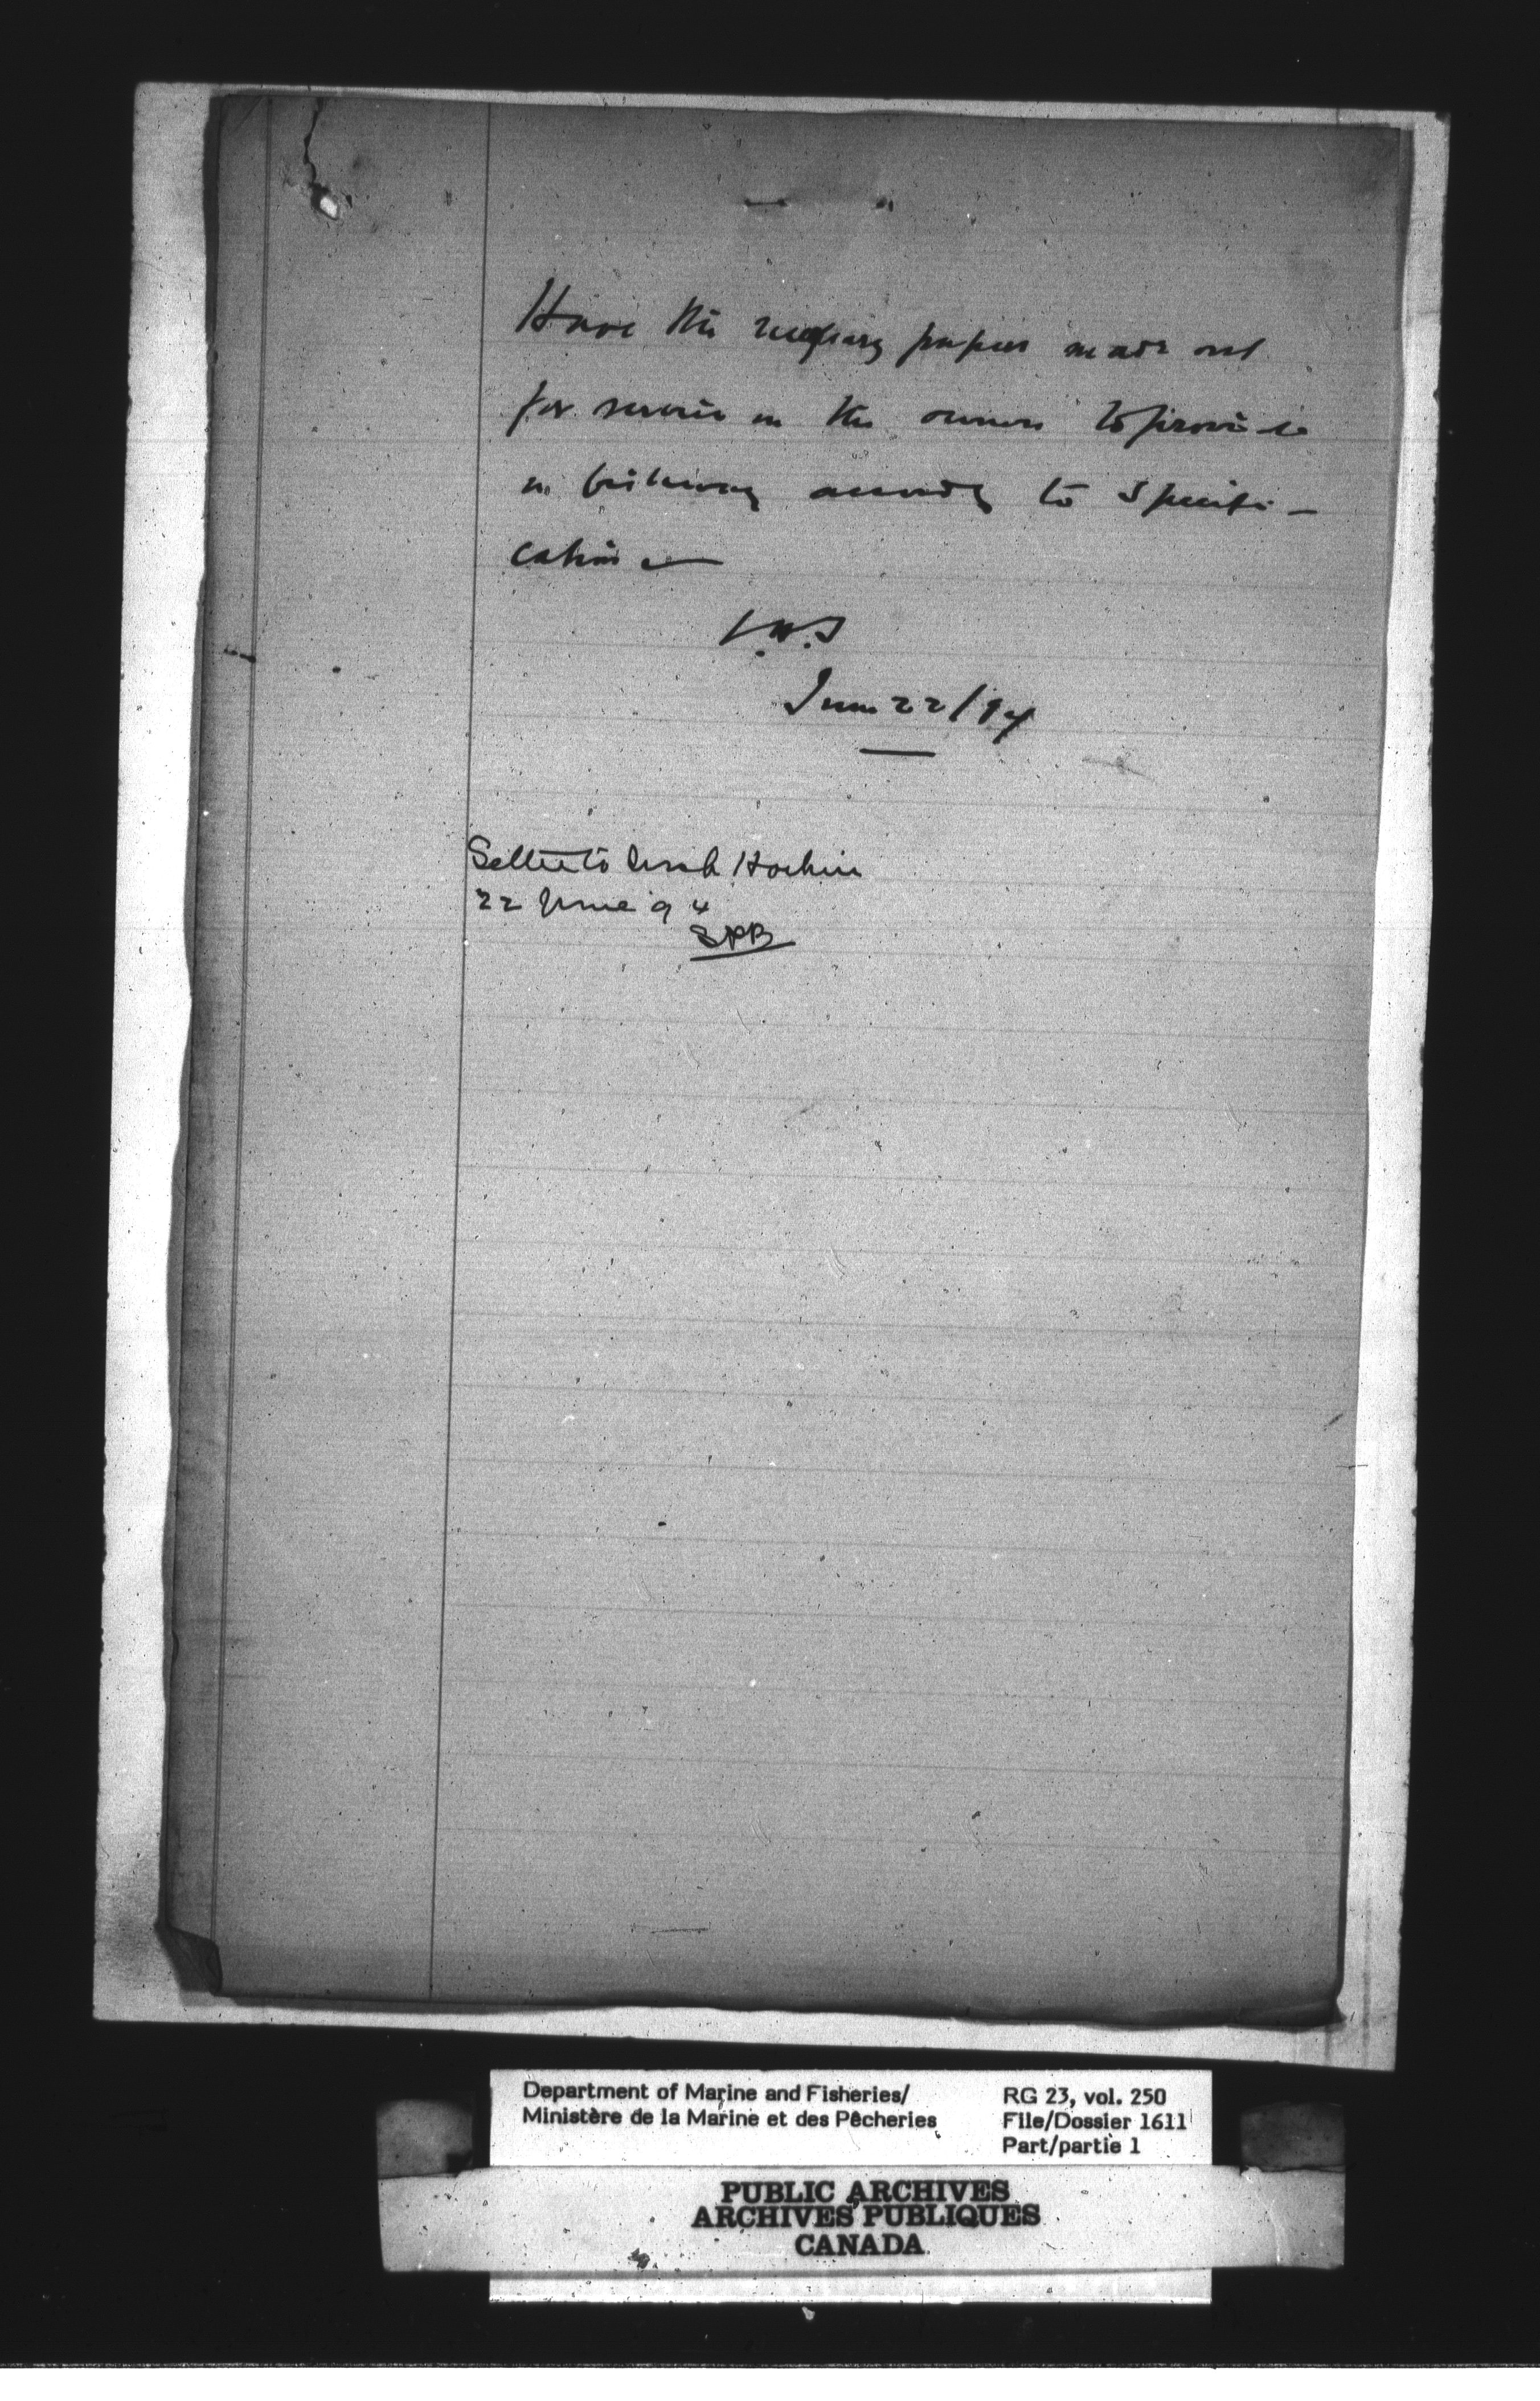 Have the necessary papers made out
for service on the owners to provide
a fishway according to specifi-
cation
June 22/94
Letter to Hockin
22 June 94
SPB
Department of Marine and Fisheries/
Ministère de la Marine et des Pêcheries
RG 23, vol. 250
File/Dossier 1611
Part/partie 1
PUBLIC ARCHIVES
ARCHIVES PUBLIQUES
CANADA